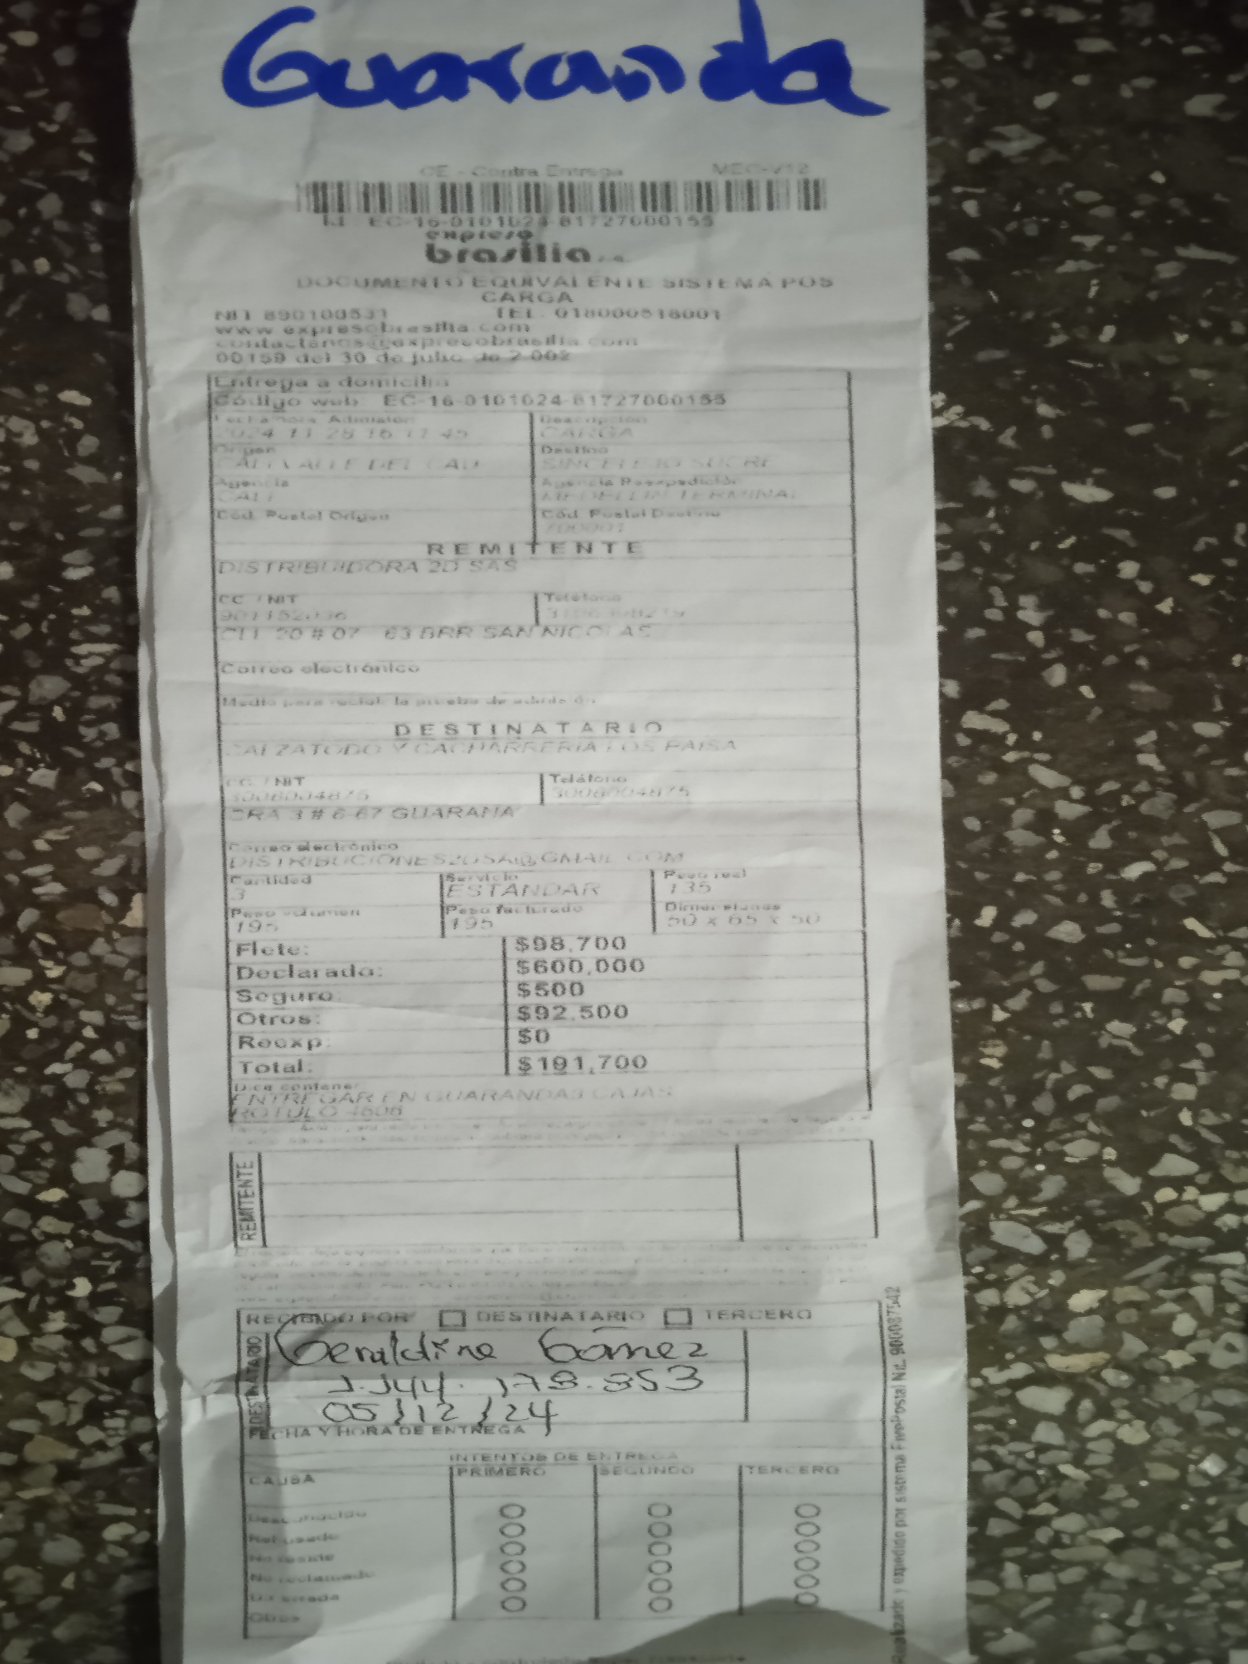 Guaranda
CE - Contra Entrega MEC-V12
EC-16-0101024-81727000155
expreso
brasilia s.a.
DOCUMENTO EQUIVALENTE SISTEMA POS
CARGA
NIT 890100531 TEL: 018000518001
www.expresobrasilia.com
contactenos@expresobrasilia.com
00159 del 30 de julio de 2.002
Entrega a domicilio
Código web: EC-16-0101024-81727000155
Fecha/hora Admisión Descripción
2024-11-28 16:11:45 CARGA
Origen Destino
CALI VALLE DEL CAU SINCELEJO SUCRE
Agencia Agencia Reexpedición
CALI MEDELLIN TERMINAL
Cód. Postal Origen Cód. Postal Destino
700001
REMITENTE
DISTRIBUIDORA 2D SAS
CC / NIT Teléfono
CLL 20 # 07 63 BRR SAN NICOLAS
Correo electrónico
Medio para recibir la prueba de admisión
DESTINATARIO
CALZATODO Y CACHARRERIA LOS PAISA
CC / NIT Teléfono
3008004875 3008004875
CRA 3 # 6-67 GUARANA
Correo electrónico
DISTRIBUCIONES2GSA@GMAIL.COM
Cantidad Servicio Peso real
3 ESTANDAR 135
Peso volumen Peso facturado Dimensiones
195 195 50 x 65 x 50
Flete: $98.700
Declarado: $600,000
Seguro: $500
Otros: $92.500
Reexp: $0
Total: $191,700
Dice contener
ENTREGAR EN GUARANDA3 CAJAS
ROTULO 4608
REMITENTE
RECIBIDO POR DESTINATARIO TERCERO
DESTINATARIO
Geraldine Gómez
1.144.178.853
05/12/24
FECHA Y HORA DE ENTREGA
INTENTOS DE ENTREGA
CAUSA PRIMERO SEGUNDO TERCERO
Desconocido
Rehusado
No reside
No reclamado
Dir errada
Otros
Realizado y expedido por sistema FirePostal Nit. 900087542